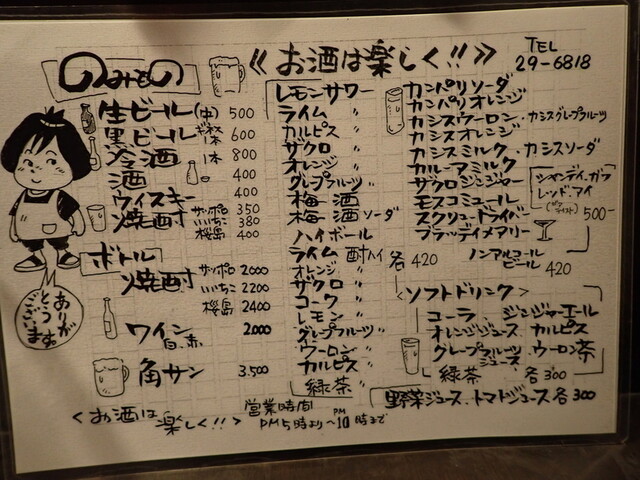 のみもの
《お酒は楽しく!!》
TEL
29-6818
生ビール(中) 500
黒ビール 600
冷酒 1本 800
酒 400
ウィスキー 400
焼酎 サッポロ 350
いいちこ 380
桜島 400
ボトル
焼酎 サッポロ 2000
いいちこ 2200
桜島 2400
ワイン 2.000
白.赤
角サン 3.500
ありがとうございます
レモンサワー
ライム 〃
カルピス 〃
ザクロ 〃
オレンジ 〃
グレープフルーツ 〃
梅酒
梅酒ソーダ
ハイボール
ライム酎ハイ
オレンジ 〃
ザクロ 〃
コーク 〃
レモン 〃
グレープフルーツ 〃
ウーロン 〃
カルピス 〃
緑茶 〃
各420
カンパリソーダ
カンパリオレンジ
カシスウーロン.カシスグレプフルーツ
カシスオレンジ
カシスミルク.カシスソーダ
カルーアミルク
ザクロジンジャー
モスコミュール
スクリュードライバー
ブラッディメアリー
シャンディ.ガフ
レッド.アイ
500-
ノンアルコール
ビール 420
<ソフトドリンク>
コーラ ジンジャーエール
オレンジジュース カルピス
グレープフルーツジュース ウーロン茶
緑茶 各300
野菜ジュース.トマトジュース各300
<お酒は楽しく!!>
営業時間
PM5時より~PM10時まで